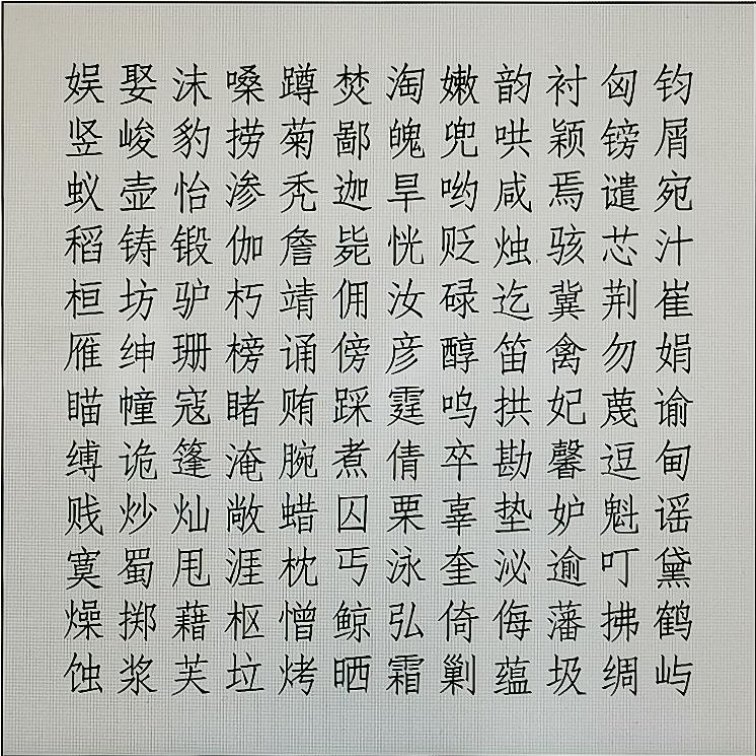 娱娶沫嗓蹲焚淘嫩韵衬匈钧
竖峻豹捞菊鄙魄兜哄颖镑屑
蚁壶怡渗秃迦旱哟咸焉谴宛
稻铸锻伽詹毙恍贬烛骇芯汁
桓坊驴朽靖佣汝碌迄冀荆崔
雁绅珊榜诵傍彦醇笛禽勿娟
瞄幢寇睹贿踩霆呜拱妃蔑谕
缚诡篷淹腕煮倩卒勘馨逗甸
贱炒灿敞蜡囚栗辜垫妒魁谣
寞蜀甩涯枕丐泳奎泌逾叮黛
燥掷藉枢憎鲸弘倚侮藩拂鹤
蚀浆芙垃烤晒霜剿蕴圾绸屿